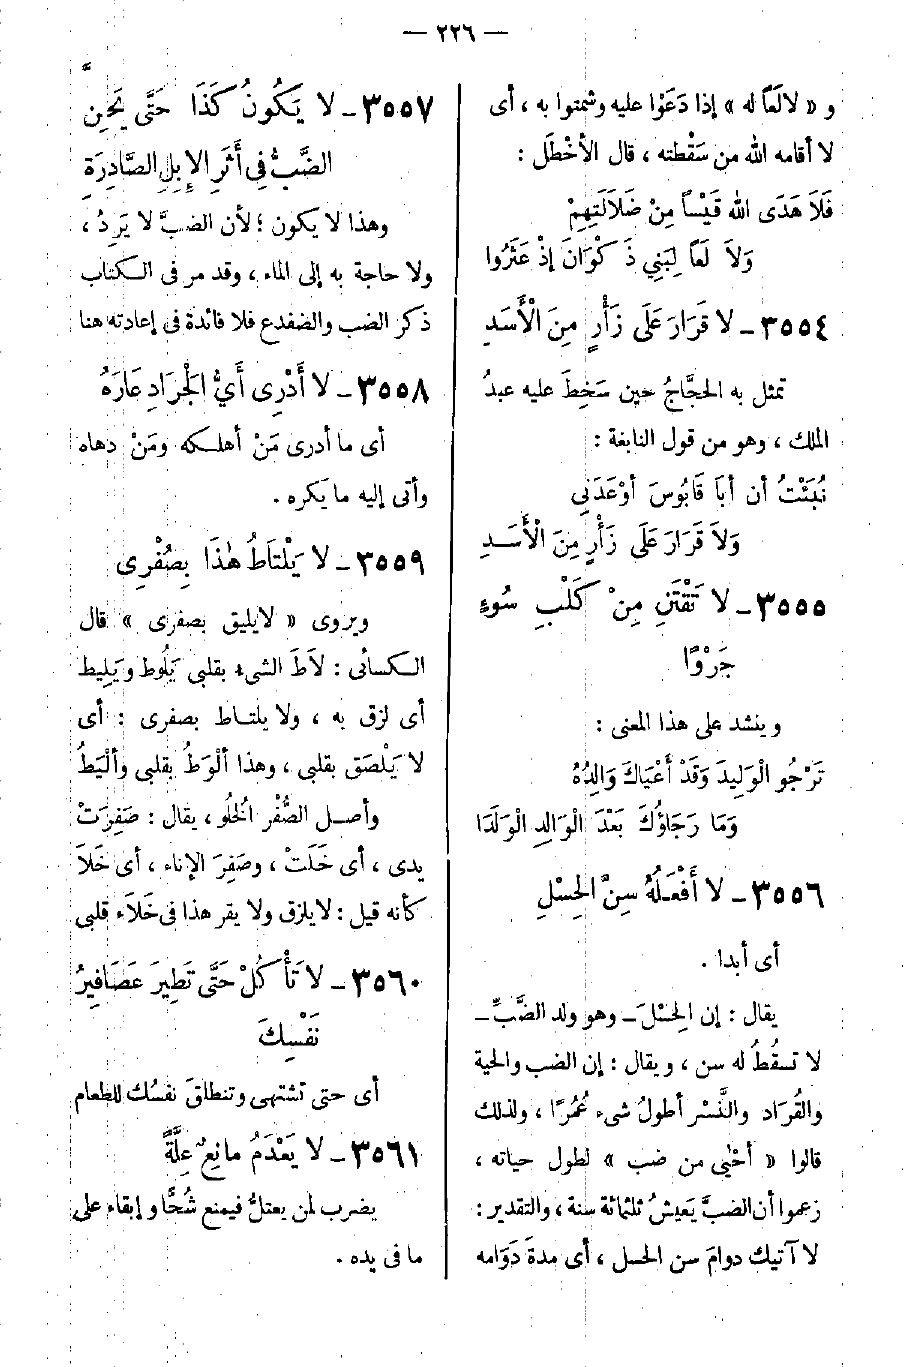 — ٢٢٦ —
و « لا لَعًا له » إذا دَعَوْا عليه وشمتوا به ، أى
لا أقامه الله من سَقْطته ، قال الأخْطَل :
فَلاَ هَدَى الله قَيْسًا مِنْ ضَلاَلَتِهِمْ
وَلاَ لَعًا لِبَنِي ذَكْوَانَ إذْ عَثَرُوا
٣٥٥٤ - لا قَرَارَ عَلَى زَأْرٍ مِنَ الْأَسَدِ
تمثل به الحَجَّاجُ حين سَخِطَ عليه عبدُ
الملك ، وهو من قول النابغة :
نُبِّئْتُ أن أبَا قَابُوسَ أوْعَدَنِي
وَلاَ قَرَارَ عَلَى زَأْرٍ مِنَ الْأَسَدِ
٣٥٥٥ - لا تَقْتَنِ مِنْ كَلْبِ سُوءٍ
جَرْوًا
وينشد على هذا المعنى :
تَرْجُو الْوَلِيدَ وَقَدْ أَعْيَاكَ وَالِدُهُ
وَمَا رَجَاؤُكَ بَعْدَ الْوَالِدِ الْوَلَدَا
٣٥٥٦ - لا أَفْعَلُهُ سِنَّ الحِسْلِ
أى أبدا .
يقال : إن الحِسْلَ - وهو ولد الضَّبِّ -
لا تسقُطُ له سن ، ويقال : إن الضب والحية
والقُرَاد والنَّسْر أطولُ شىء عُمُرًا ، ولذلك
قالوا « أَحْيَى من ضب » لطول حياته ،
زعموا أن الضبَّ يَعيشُ ثلثمائة سنة ، والتقدير :
لا آتيك دوامَ سن الحسل ، أى مدةَ دَوَامه
٣٥٥٧ - لا يَكُونُ كَذَا حَتَّى يَحِنَّ
الضَّبُّ فِى أَثَرِ الإِبِلِ الصَّادِرَةِ
وهذا لا يكون ؛ لأن الضبَّ لا يَرِدُ ،
ولا حاجة به إلى الماء ، وقد مر فى الكتاب
ذكر الضب والضفدع فلا فائدة فى إعادته هنا
٣٥٥٨ - لا أَدْرِى أَىُّ الْجَرَادِ عَارَهُ
أى ما أدرى مَنْ أهلكه ومَنْ دهاه
وأتى إليه ما يَكره .
٣٥٥٩ - لا يَلْتَاطُ هٰذَا بِصُفْرِى
ويروى « لا يليق بصفرى » قال
الكسائى : لاَطَ الشىء بقلبى يَلُوط ويَلِيط
أى لزق به ، ولا يلتاط بصفرى : أى
لا يَلْصَق بقلبى ، وهذا ألْوَطُ بقلبى وألْيَطُ
وأصل الصُّفْر الخُلُو ، يقال : صَفِرَتْ
يدى ، أى خَلَتْ ، وصَفِرَ الإناء ، أى خَلاَ
كأنه قيل : لا يلزق ولا يقر هذا فى خَلاَء قلبى
٣٥٦٠ - لا تَأْكُلْ حَتَّى تَطِيرَ عَصَافِيرُ
نَفْسِكَ
أى حتى تشتهى وتنطلقَ نفسُك للطعام
٣٥٦١ - لا يَعْدَمُ مانِعٌ عِلَّةً
يضرب لمن يعتلُّ فيمنع شُحًّا وإبقاء على
ما فى يده .